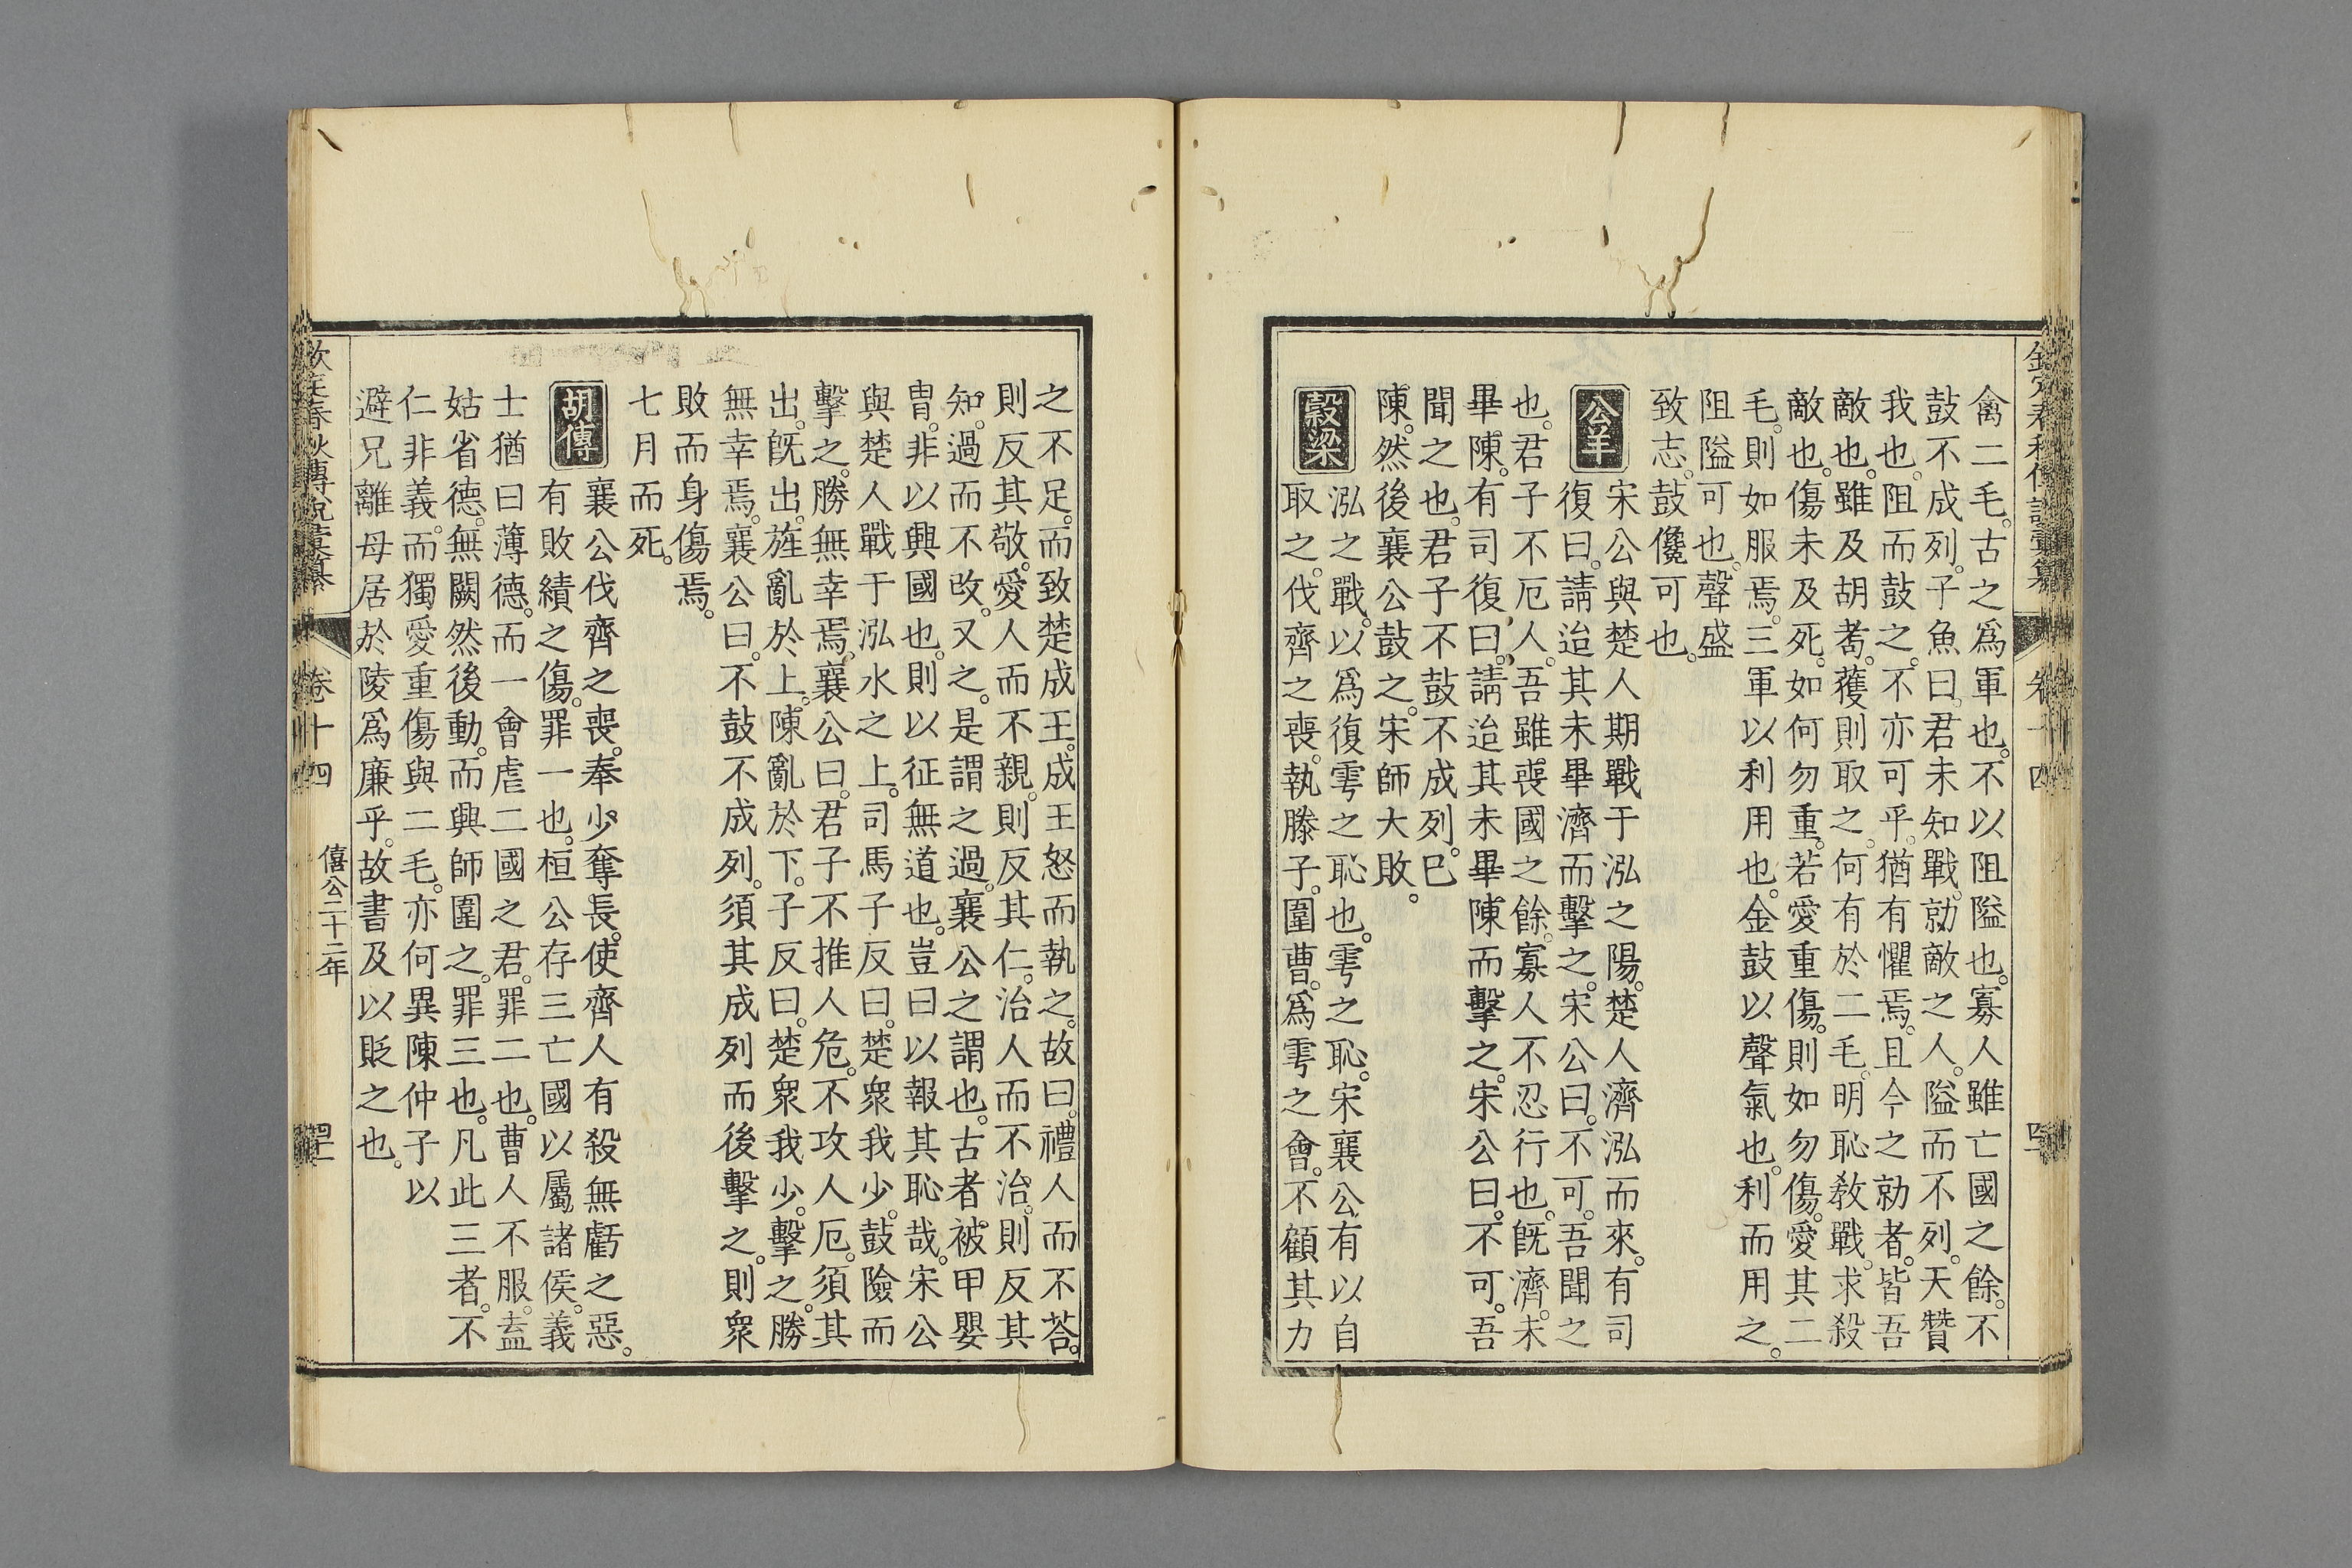 禽二毛。古之爲軍也。不以阻隘也。寡人雖亡國之餘。不
鼓不成列。子魚曰。君未知戰。勍敵之人。隘而不列。天贊
我也。阻而鼓之。不亦可乎。猶有懼焉。且今之勍者。皆吾
敵也。雖及胡耈。獲則取之。何有於二毛。明恥敎戰。求殺
敵也。傷未及死。如何勿重。若愛重傷。則如勿傷。愛其二
毛。則如服焉。三軍以利用也。金鼓以聲氣也。利而用之。
阻隘可也。聲盛
致志。鼓儳可也。
公羊
宋公與楚人期戰于泓之陽。楚人濟泓而來。有司
復曰。請迨其未畢濟而擊之。宋公曰。不可。吾聞之
也。君子不厄人。吾雖喪國之餘。寡人不忍行也。旣濟。未
畢陳。有司復曰。請迨其未畢陳而擊之。宋公曰。不可。吾
聞之也。君子不鼓不成列。巳
陳。然後襄公鼓之。宋師大敗。
穀梁
泓之戰。以爲復雩之恥也。雩之恥。宋襄公有以自
取之。伐齊之喪。執滕子。圍曹。爲雩之會。不顧其力
之不足。而致楚成王。成王怒而執之。故曰。禮人而不荅。
則反其敬。愛人而不親。則反其仁。治人而不治。則反其
知。過而不改。又之。是謂之過。襄公之謂也。古者被甲嬰
胄。非以興國也。則以征無道也。豈曰以報其恥哉。宋公
與楚人戰于泓水之上。司馬子反曰。楚衆我少。鼓險而
擊之。勝無幸焉。襄公曰。君子不推人危。不攻人厄。須其
出。旣出。旌亂於上。陳亂於下。子反曰。楚衆我少。擊之。勝
無幸焉。襄公曰。不鼓不成列。須其成列而後擊之。則衆
敗而身傷焉。
七月而死。
胡傳
襄公伐齊之喪。奉少奪長。使齊人有殺無虧之惡。
有敗績之傷。罪一也。桓公存三亡國以屬諸侯。義
士猶曰薄德。而一會虐二國之君。罪二也。曹人不服。盍
姑省德。無闕然後動。而興師圍之。罪三也。凡此三者。不
仁非義。而獨愛重傷與二毛。亦何異陳仲子以
避兄離母居於陵爲廉乎。故書及以貶之也。
欽定春秋傳說彙纂
卷十四
僖公二十二年